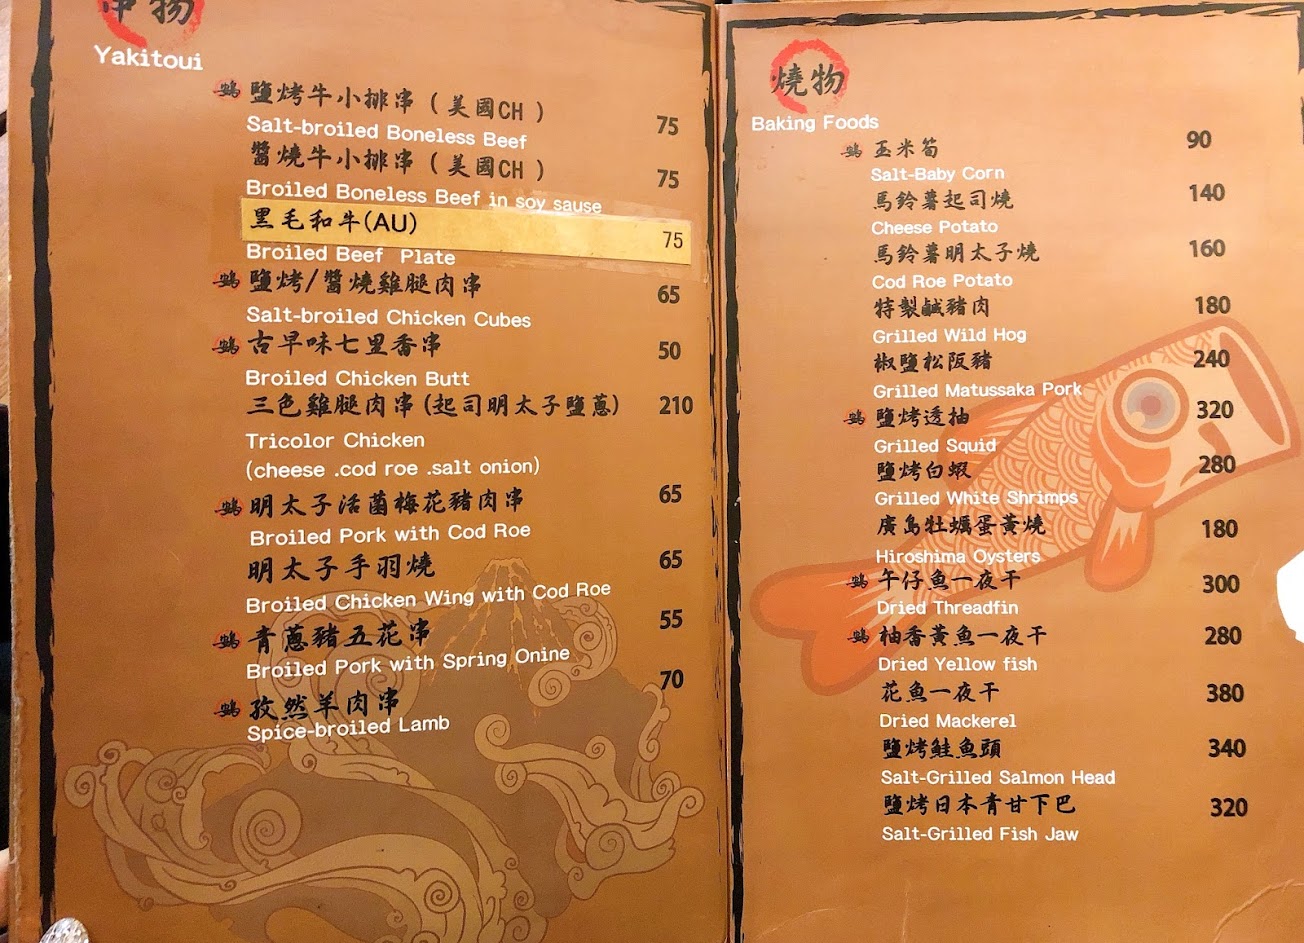 串物
Yakitoui
鹽烤牛小排串(美國CH) 75
Salt-broiled Boneless Beef
醬燒牛小排串(美國CH) 75
Broiled Boneless Beef in soy sause
黑毛和牛(AU) 75
Broiled Beef Plate
鹽烤/醬燒雞腿肉串 65
Salt-broiled Chicken Cubes
古早味七里香串 50
Broiled Chicken Butt
三色雞腿肉串(起司明太子鹽蔥) 210
Tricolor Chicken
(cheese .cod roe .salt onion)
明太子活菌梅花豬肉串 65
Broiled Pork with Cod Roe
明太子手羽燒 65
Broiled Chicken Wing with Cod Roe
青蔥豬五花串 55
Broiled Pork with Spring Onine
孜然羊肉串 70
Spice-broiled Lamb
燒物
Baking Foods
玉米筍 90
Salt-Baby Corn
馬鈴薯起司燒 140
Cheese Potato
馬鈴薯明太子燒 160
Cod Roe Potato
特製鹹豬肉 180
Grilled Wild Hog
椒鹽松阪豬 240
Grilled Matussaka Pork
鹽烤透抽 320
Grilled Squid
鹽烤白蝦 280
Grilled White Shrimps
廣島牡蠣蛋黃燒 180
Hiroshima Oysters
午仔魚一夜干 300
Dried Threadfin
柚香黃魚一夜干 280
Dried Yellow fish
花魚一夜干 380
Dried Mackerel
鹽烤鮭魚頭 340
Salt-Grilled Salmon Head
鹽烤日本青甘下巴 320
Salt-Grilled Fish Jaw